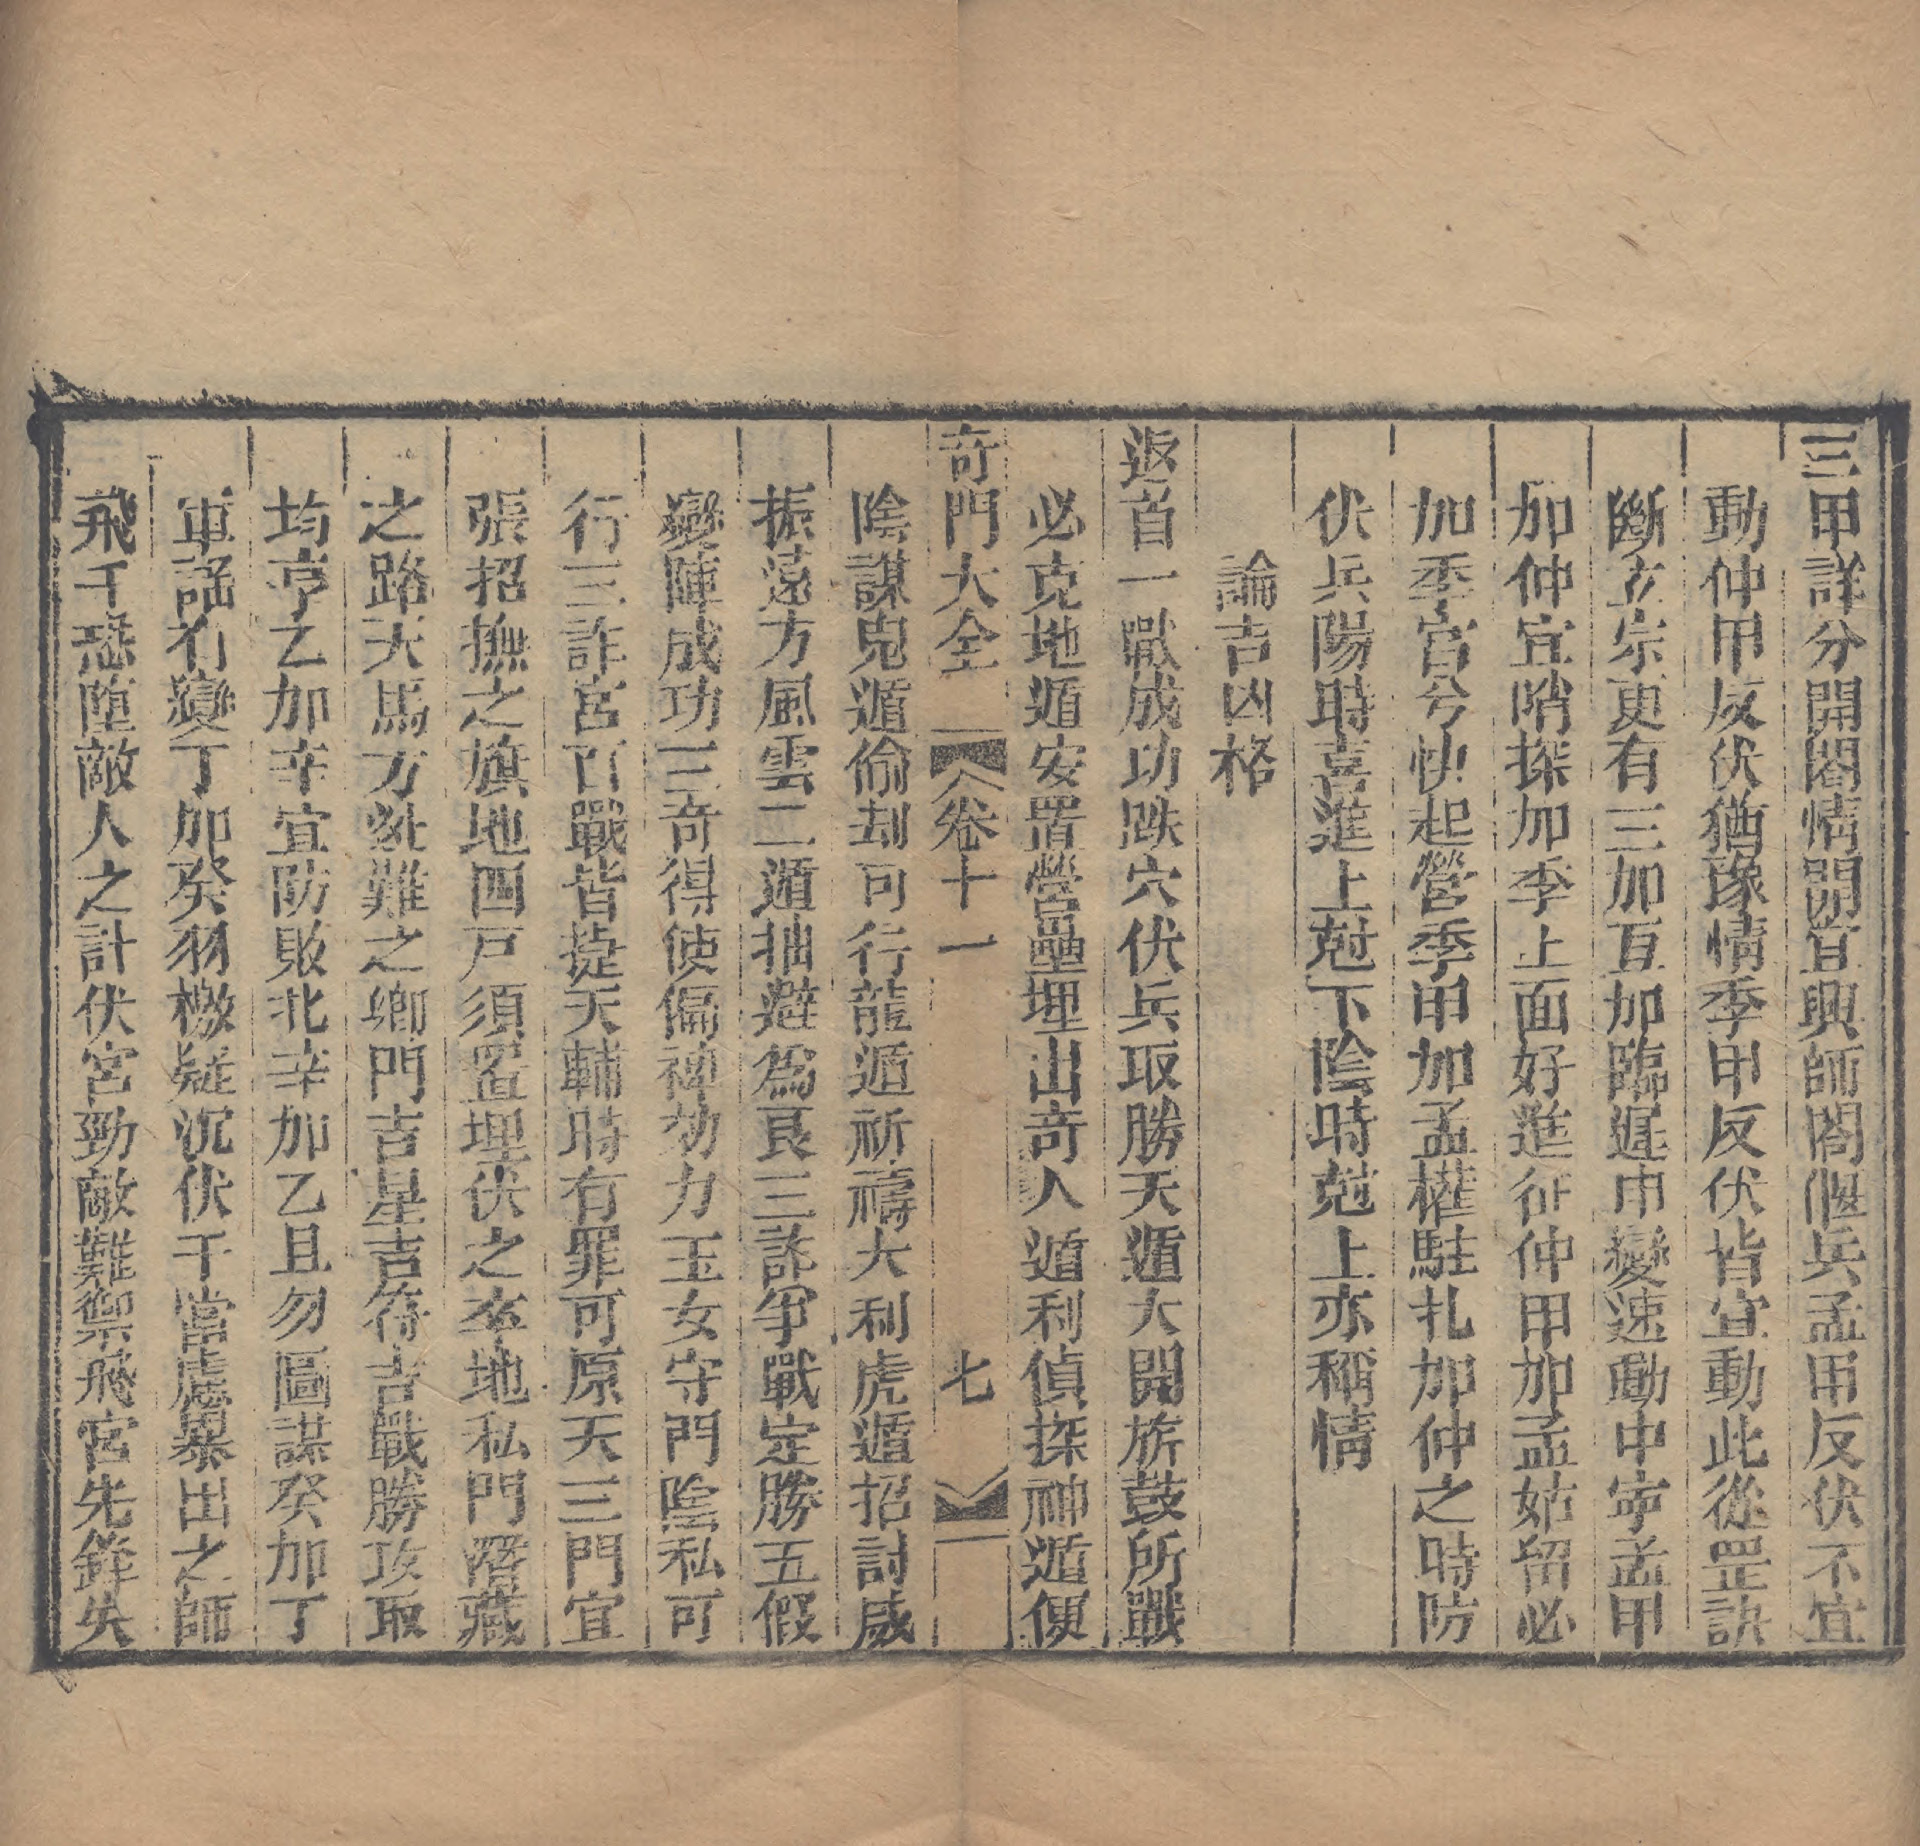 三甲詳分開闔情開宜興師闔偃兵孟甲反伏不宜
動仲甲反伏猶豫情季甲反伏皆宜動此從罡訣
斷玄宗更有三加互加臨遲中變速動中寧孟甲
加仲宜哨探加季上面好進征仲甲加孟姑留必
加季宫兮快起營季甲加孟權駐扎加仲之時防
伏兵陽時喜進上尅下陰時尅上亦稱情
論吉凶格
返首一戰成功跌穴伏兵取勝天遁大開旂鼓所戰
必克地遁安置營壘埋出奇人遁利偵探神遁便
奇門大全 卷十一 七
陰謀鬼遁偷刦可行龍遁祈禱大利虎遁招討威
振遠方風雲二遁拙避爲良三詐爭戰定勝五假
變陣成功三奇得使偏裨効力玉女守門陰私可
行三詐宮百戰皆捷天輔時有罪可原天三門宜
張招撫之旗地四戸須置埋伏之卒地私門潛藏
之路天馬方逃難之鄉門吉星吉符吉戰勝攻取
均亨乙加辛宜防敗北辛加乙且勿圖謀癸加丁
軍謡有變丁加癸羽檄疑沉伏干當慮暴出之師
飛千恐墮敵人之計伏宮勁敵難禦飛宮先鋒失